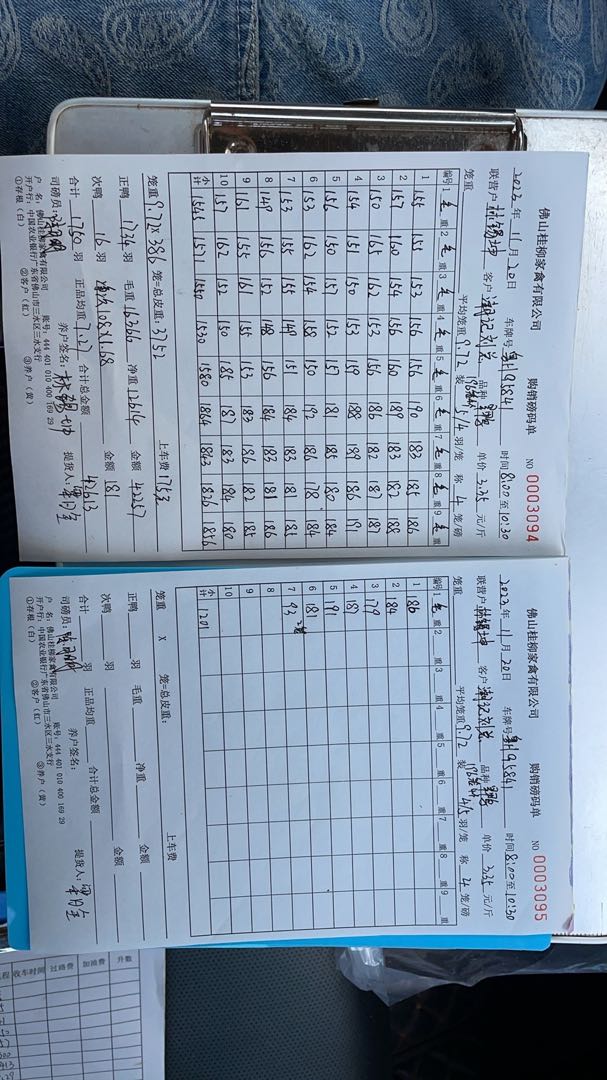 佛山桂柳家禽有限公司 购销磅码单 NO 0003094
2023年 11月 20日 车牌号 粤J95841 时间 8:00至10:30
联营户 林锡坤 客户 湘记刘兰 品种 单价 3.35 元/斤
笼重 平均笼重 9.72 装 5/4 羽/笼 称 4 笼/磅
编号 1 毛重 2 毛重 3 毛重 4 毛重 5 毛重 6 毛重 7 毛重 8 毛重 9 毛重
1 155 155 153 156 156 190 183 185 186
2 157 160 154 156 160 189 183 182 188
3 150 165 162 153 156 186 182 181 187
4 154 151 150 153 159 188 189 186 191
5 156 150 157 152 157 181 185 180 184
6 153 162 154 158 150 192 181 178 184
7 153 155 155 149 151 184 183 181 185
8 149 156 152 148 156 184 183 181 186
9 161 155 161 155 153 183 186 182 185
10 157 162 152 150 185 187 183 184 180
小计 1546 1571 1550 1530 1580 1864 1843 1826 1856
笼重 9.72 X 386 笼=总皮重: 3752 上车费 175元
正鸭 1734 羽 毛重 16366 净重 12614 金额 42257
次鸭 16 羽 10831.68 金额 181
合计 1750 羽 正品均重 7.27 合计总金额 42613
司磅员: 养户签名: 林锡坤 提货人:
户 名: 佛山桂柳家禽有限公司 账号: 444 401 010 400 169 29
开户行: 中国农业银行广东省佛山市三水区三水支行
①存根(白) ②客户(红) ③养户(黄)
佛山桂柳家禽有限公司 购销磅码单 NO 0003095
2023年 11月 20日 车牌号 粤J95841 时间 8:00至10:30
联营户 林锡坤 客户 湘记刘兰 品种 单价 3.35 元/斤
笼重 平均笼重 9.72 装 4/5 羽/笼 称 4 笼/磅
编号 1 毛重 2 重 3 重 4 重 5 重 6 重 7 重 8 重 9 重
1 186
2 184
3 179
4 187
5 191
6 181
7 93 2笼
8
9
10
小计 1201
笼重 X 笼=总皮重: 上车费
正鸭 羽 毛重 净重 金额
次鸭 羽 金额
合计 羽 正品均重 合计总金额
司磅员: 养户签名: 提货人:
户 名: 佛山桂柳家禽有限公司 账号: 444 401 010 400 169 29
开户行: 中国农业银行广东省佛山市三水区三水支行
①存根(白) ②客户(红) ③养户(黄)
程 收车时间 过路费 加油费 升数